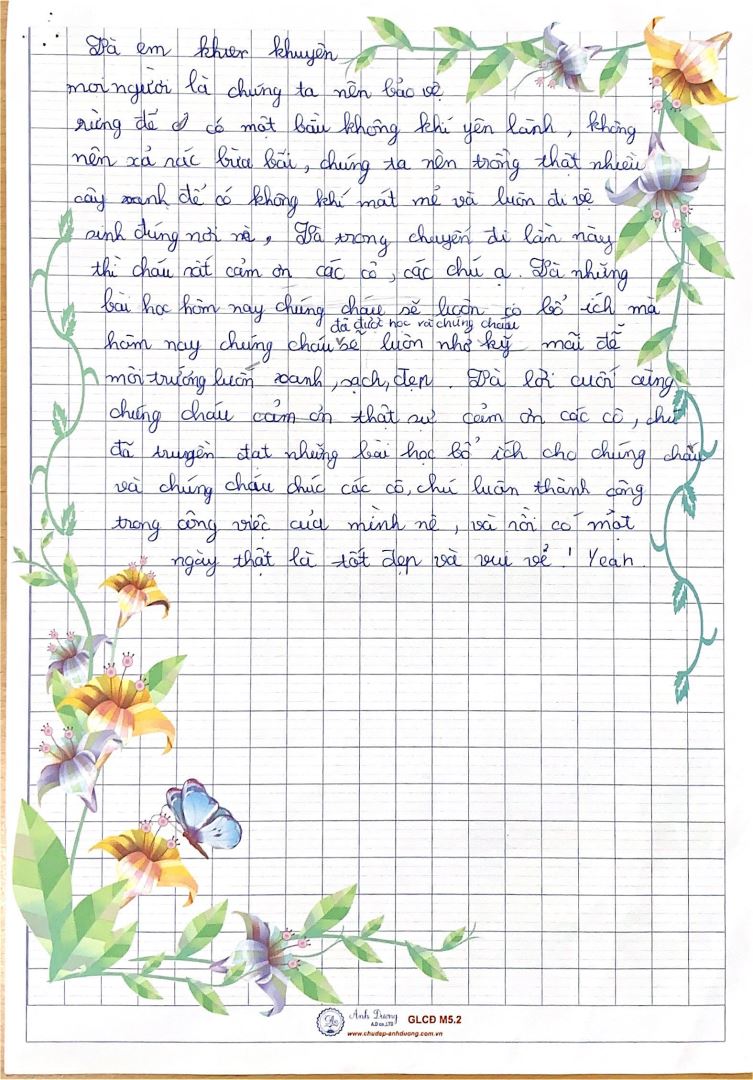 Và em khuer khuyên
mọi người là chúng ta nên bảo vệ
rừng để có một bầu không khí yên lành, không
nên xả rác bừa bãi, chúng ta nên trồng thật nhiều
cây xanh để có không khí mát mẻ và luôn đi vệ
sinh đúng nơi nè, Và trong chuyến đi lần này
thì cháu rất cảm ơn các cô, các chú ạ. Và những
bài học hôm nay chúng cháu sẽ luôn có bổ ích mà
đã được học và chúng cháu
hôm nay chúng cháu sẽ luôn nhớ kỹ mãi để
môi trường luôn xanh, sạch, đẹp. Và lời cuối cùng
chúng cháu cảm ơn thật sự cảm ơn các cô, chú
đã truyền đạt những bài học bổ ích cho chúng cháu
và chúng cháu chúc các cô, chú luôn thành công
trong công việc của mình nè, và rồi có một
ngày thật là tốt đẹp và vui vẻ! Yeah.
Ánh Dương
A.D co.,LTD
GLCĐ M5.2
www.chudep-anhduong.com.vn